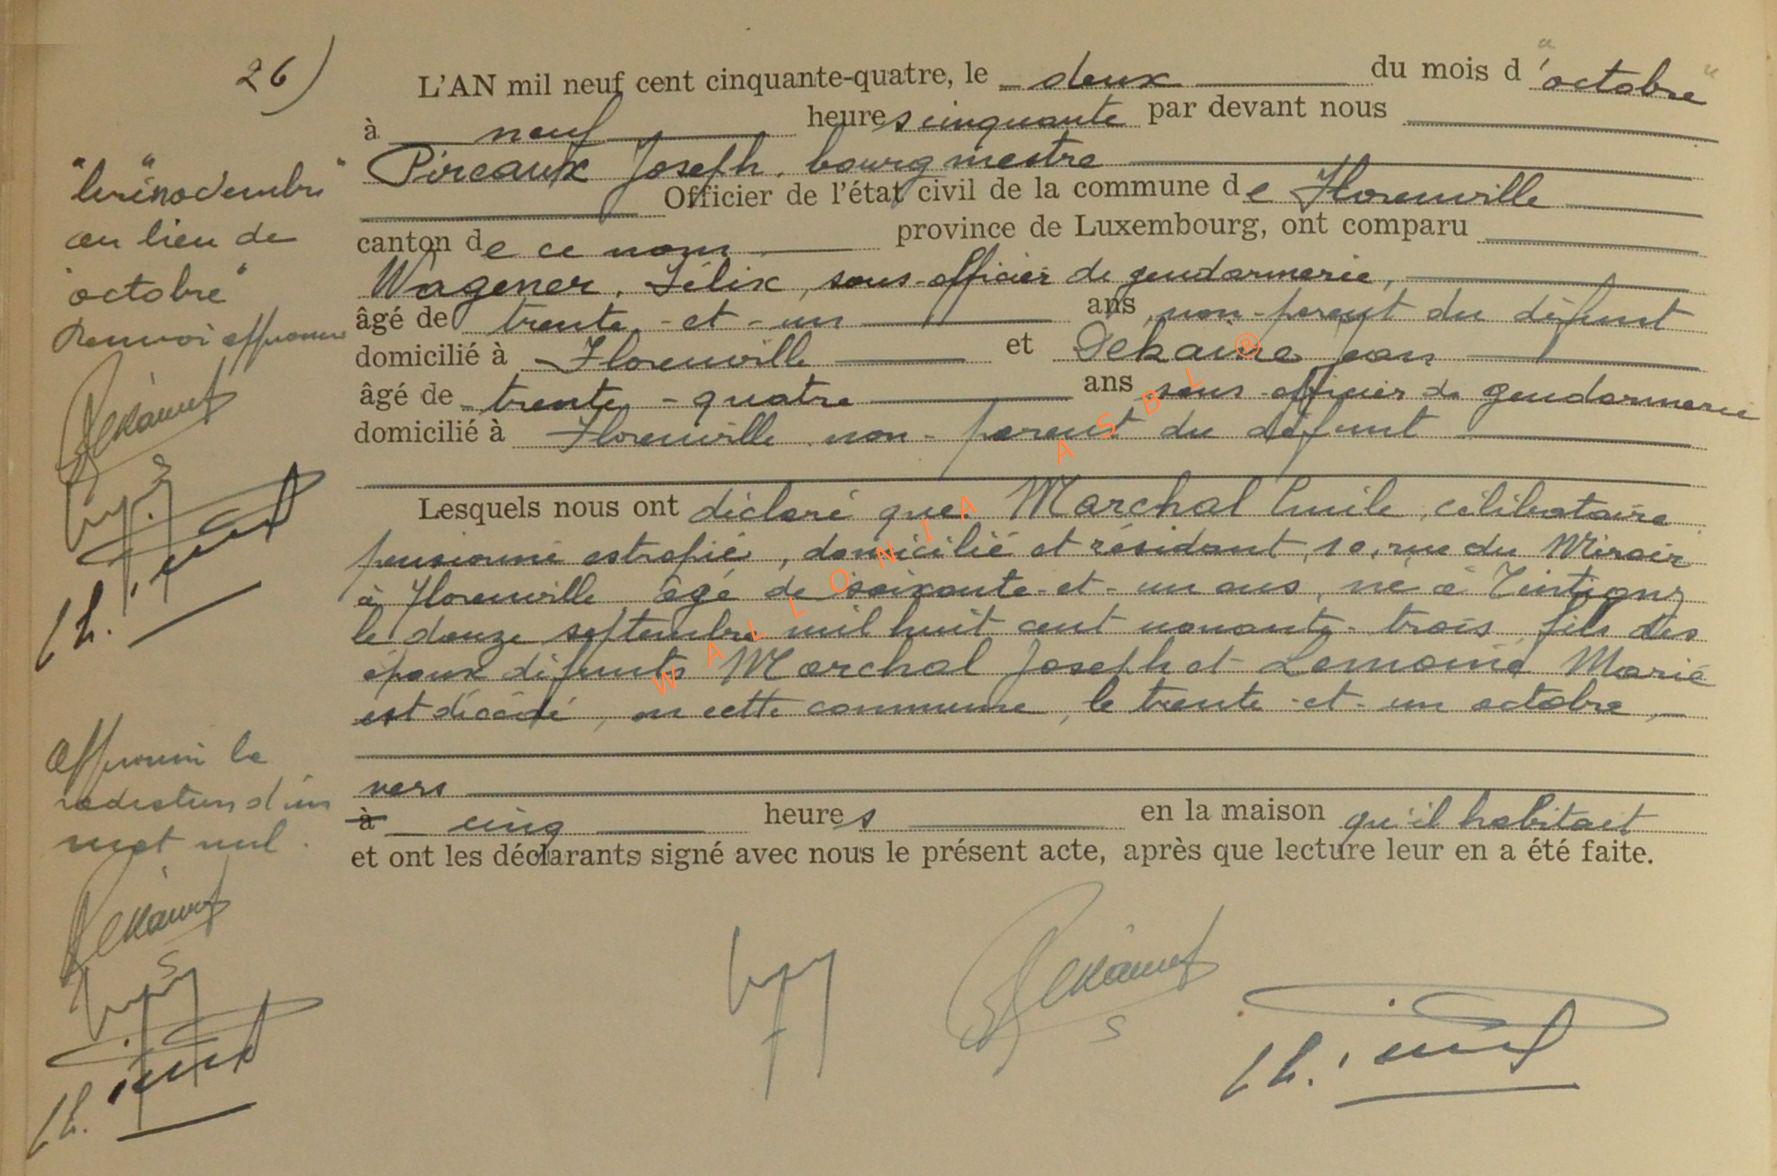 26)
L'AN mil neuf cent cinquante-quatre, le deux du mois d'"octobre"
à neuf heures cinquante par devant nous
Pireaux Joseph, bourgmestre
Officier de l'état civil de la commune de Florenville
canton de ce nom province de Luxembourg, ont comparu
Wagener, Félix, sous-officier de gendarmerie,
âgé de trente-et-un ans non-parent du défunt
domicilié à Florenville et Jean
âgé de trente-quatre ans sous-officier de gendarmerie
domicilié à Florenville non-parent du défunt
Lesquels nous ont déclaré que Marchal Emile, célibataire
pensionné estropié, domicilié et résidant, 10, rue du Miroir
à Florenville, âgé de soixante-et-un ans, né à Tintigny
le douze septembre mil huit cent nonante-trois, fils des
époux défunts Marchal Joseph et Lemoine Marie
est décédé, en cette commune, le trente-et-un octobre,
vers
à cinq heures en la maison qu'il habitait
et ont les déclarants signé avec nous le présent acte, après que lecture leur en a été faite.
novembre"
au lieu de
"octobre"
Renvoi approuvé
Approuvé la
radiation d'un
mot nul.
WALLONIA ASBL ®